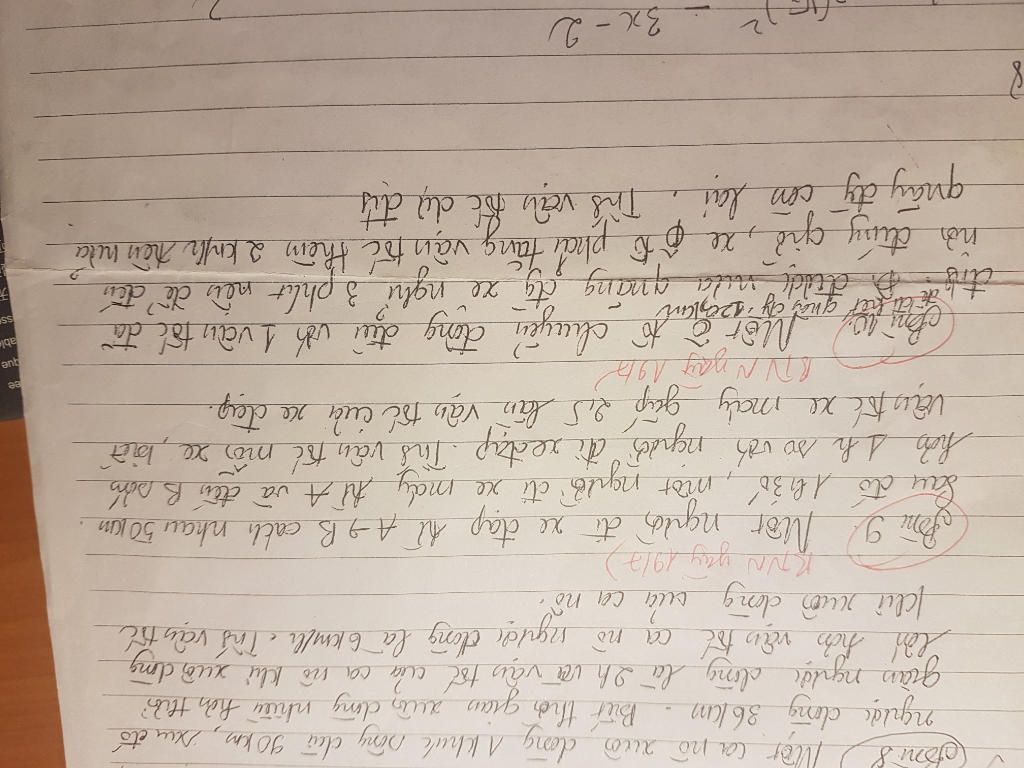 Bài 8 Một ca nô xuôi dòng 1 khúc sông dài 90 km, sau đó
ngược dòng 36 km. Biết thời gian xuôi dòng nhiều hơn thời
gian ngược dòng là 2h và vận tốc của ca nô khi xuôi dòng
lớn hơn vận tốc ca nô ngược dòng là 6 km/h. Tính vận tốc
khi xuôi dòng của ca nô.
BTVN ngày 19/7
Bài 9 Một người đi xe đạp từ A → B cách nhau 50 km.
Sau đó 1h30', một người đi xe máy từ A và đến B sớm
hơn 1 h so với người đi xe đạp. Tính vận tốc mỗi xe, biết
vận tốc xe máy gấp 2,5 lần vận tốc của xe đạp.
BTVN ngày 19/7
Bài 10: Một ô tô chuyển động đều với 1 vận tốc đã
quãng đg 120km
định. Đi được nửa quãng đg xe nghỉ 3 phút nên để đến
nơi đúng giờ, xe ô tô phải tăng vận tốc thêm 2 km/h trên nửa
quãng đg còn lại. Tính vận tốc dự định
8
3x - 2